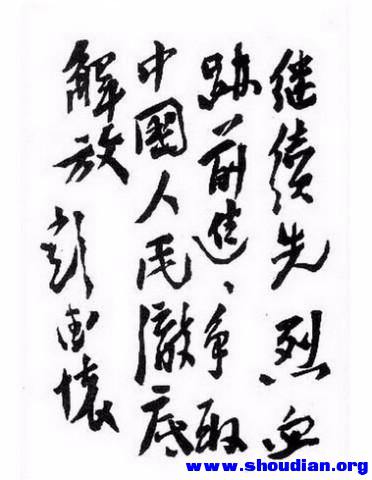 继续先烈血
跡前進、争取
中國人民澈底
解放 彭德懷
www.shoudian.org